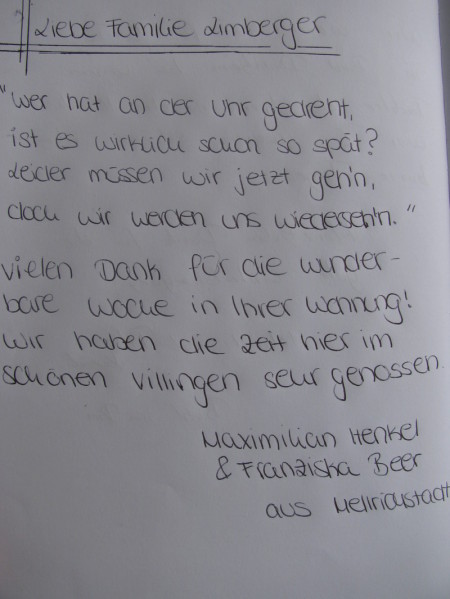 Liebe Familie Limberger
"Wer hat an der Uhr gedreht,
ist es wirklich schon so spät?
Leider müssen wir jetzt geh'n,
doch wir werden uns wiederseh'n."
Vielen Dank für die wunder-
bare Woche in Ihrer Wohnung!
Wir haben die Zeit hier im
schönen Villingen sehr genossen.
Maximilian Henkel
& Franziska Beer
aus Mellrichstadt